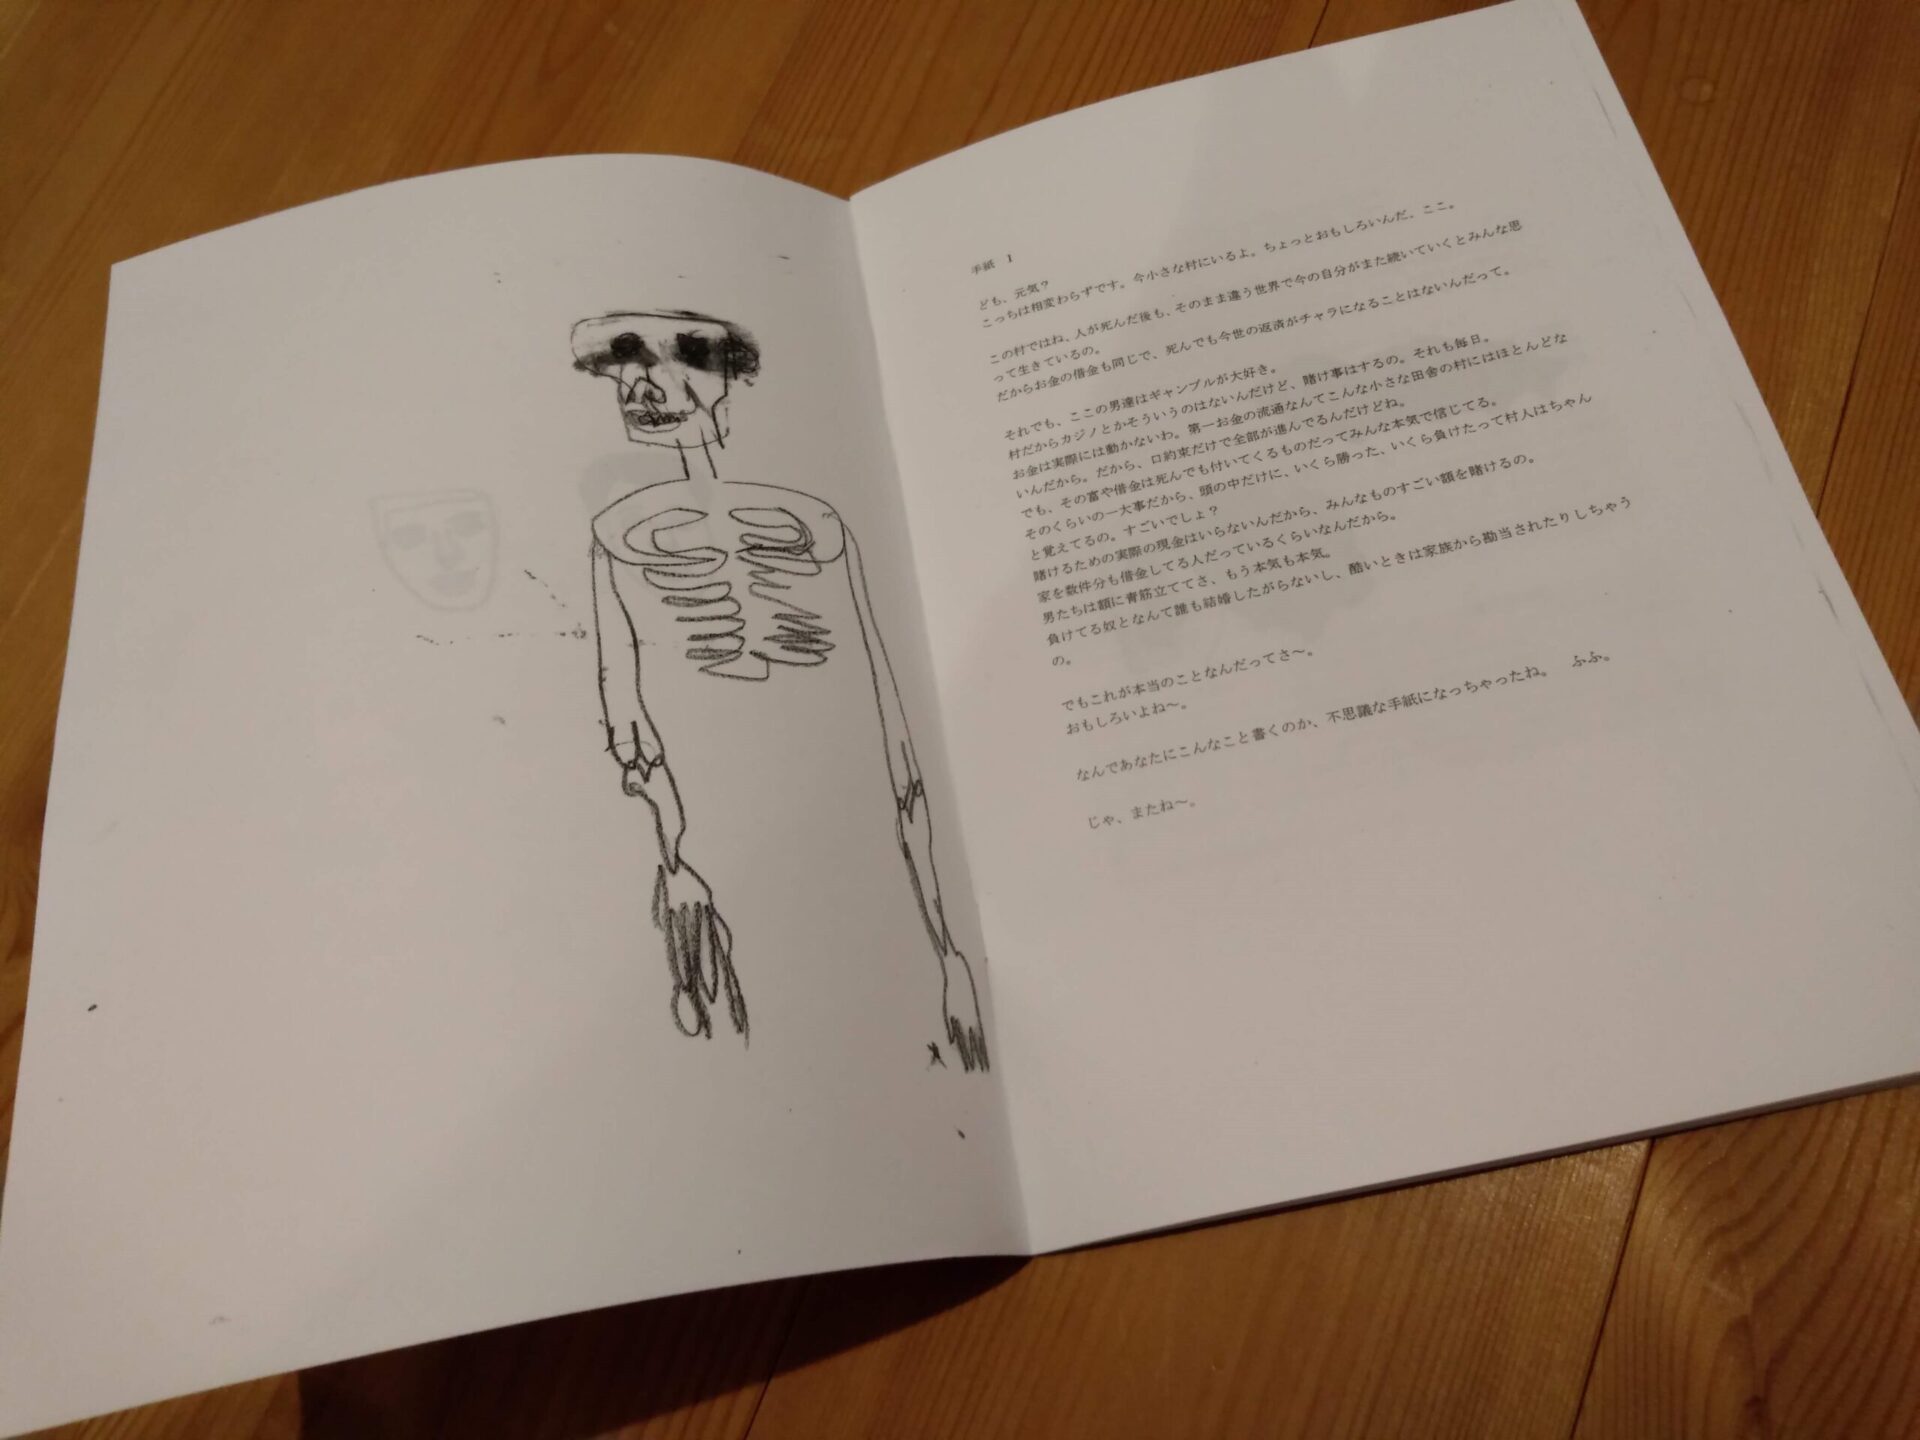 手紙　1
ども、元気？
こっちは相変わらずです。今小さな村にいるよ。ちょっとおもしろいんだ、ここ。
この村ではね、人が死んだ後も、そのまま違う世界で今の自分がまた続いていくとみんな思
って生きているの。
だからお金の借金も同じで、死んでも今世の返済がチャラになることはないんだって。
それでも、ここの男達はギャンブルが大好き。
村だからカジノとかそういうのはないんだけど、賭け事はするの。それも毎日。
お金は実際には動かないわ。第一お金の流通なんてこんな小さな田舎の村にはほとんどな
いんだから。だから、口約束だけで全部が進んでるんだけどね。
でも、その富や借金は死んでも付いてくるものだってみんな本気で信じてる。
そのくらいの一大事だから、頭の中だけに、いくら勝った、いくら負けたって村人はちゃん
と覚えてるの。すごいでしょ？
賭けるための実際の現金はいらないんだから、みんなものすごい額を賭けるの。
家を数件分も借金してる人だっているくらいなんだから。
男たちは額に青筋立ててさ、もう本気も本気。
負けてる奴となんて誰も結婚したがらないし、酷いときは家族から勘当されたりしちゃう
の。
でもこれが本当のことなんだってさ〜。
おもしろいよね〜。
なんであなたにこんなこと書くのか、不思議な手紙になっちゃったね。　ふふ。
じゃ、またね〜。